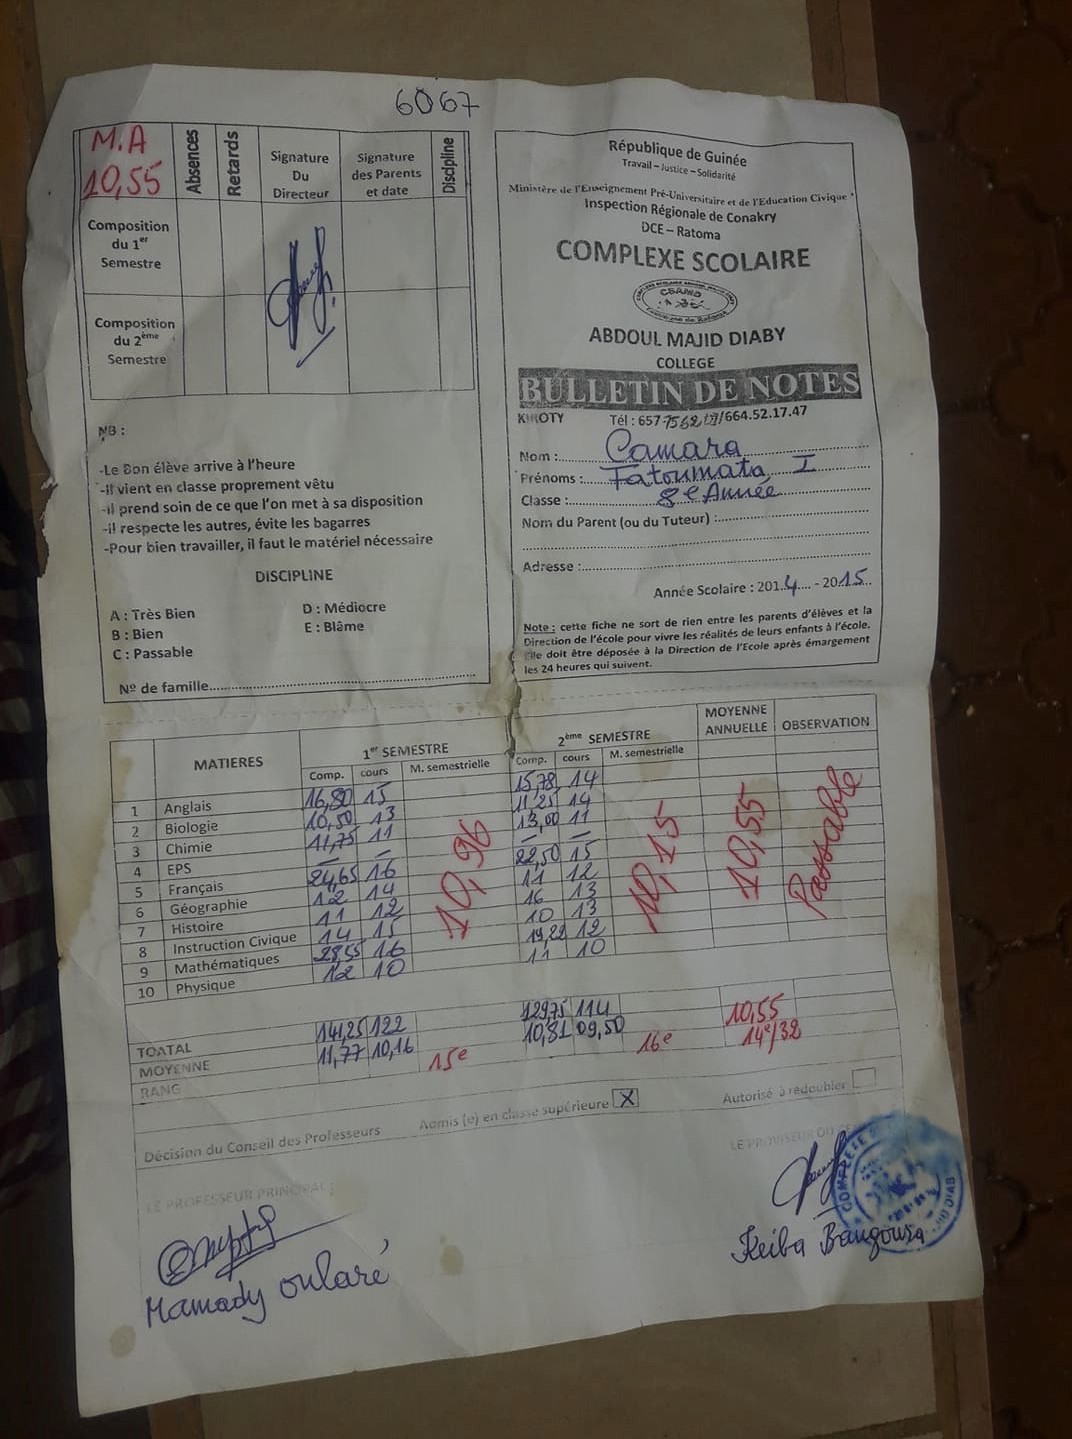 6067
M.A
10,55
Absences
Retards
Signature
Du
Directeur
Signature
des Parents
et date
Discipline
Composition
du 1er
Semestre
Composition
du 2ème
Semestre
NB :
-Le Bon élève arrive à l'heure
-Il vient en classe proprement vêtu
-il prend soin de ce que l'on met à sa disposition
-il respecte les autres, évite les bagarres
-Pour bien travailler, il faut le matériel nécessaire
DISCIPLINE
A : Très Bien D : Médiocre
B : Bien E : Blâme
C : Passable
Nº de famille
République de Guinée
Travail – Justice – Solidarité
Ministère de l'Enseignement Pré-Universitaire et de l'Education Civique
Inspection Régionale de Conakry
DCE – Ratoma
COMPLEXE SCOLAIRE
ABDOUL MAJID DIABY
COLLEGE
BULLETIN DE NOTES
KIROTY Tél : 657 /664.52.17.47
Nom : Camara
Prénoms : Fatoumata I
Classe : 8e Année
Nom du Parent (ou du Tuteur) :
Adresse :
Année Scolaire : 2014 - 2015
Note : cette fiche ne sort de rien entre les parents d'élèves et la
Direction de l'école pour vivre les réalités de leurs enfants à l'école.
Elle doit être déposée à la Direction de l'Ecole après émargement
les 24 heures qui suivent.
MATIERES 1er SEMESTRE 2ème SEMESTRE MOYENNE ANNUELLE OBSERVATION
Comp. cours M. semestrielle Comp. cours M. semestrielle
1 Anglais 16,80 15 15,78 14
2 Biologie 10,50 13 11,25 14
3 Chimie 11,75 11 13,00 11
4 EPS – – – –
5 Français 24,65 16 22,50 15
6 Géographie 12 14 11 12
7 Histoire 11 12 16 13
8 Instruction Civique 14 15 10 13
9 Mathématiques 28,55 16 19,22 12
10 Physique 12 10 11 10
10,96 10,15 10,55 Passable
TOATAL 141,25 122 129,75 114 10,55
MOYENNE 11,77 10,16 10,81 09,50
RANG 15e 16e 14e/32
Décision du Conseil des Professeurs Admis (e) en classe supérieure X Autorisé à redoubler
LE PROFESSEUR PRINCIPAL
LE PROVISEUR DU
Mamady oularé
Keiba Bangoura